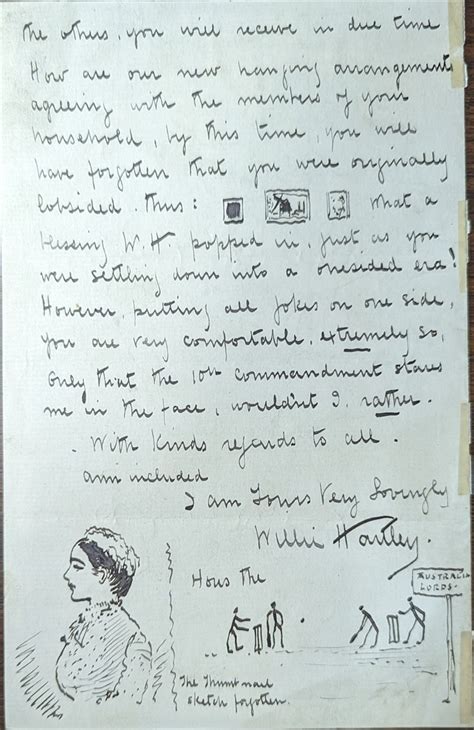 the others, you will receive in due time
How are our new hanging arrangements
agreeing with the members of your
household, by this time, you will
have forgotten that you were originally
lobsided. Thus: What a
blessing W.H. popped in, just as you
were settling down into a onesided era!
However, putting all jokes on one side,
you are very comfortable, extremely so,
only that the 10th Commandment stares
me in the face, wouldn't I, rather.
With Kinds regards to all.
ann included
I am Yours Very Lovingly
Willie Hartley.
Hows the
AUSTRALIA
LORDS.
The Thumb nail
sketch forgotten.